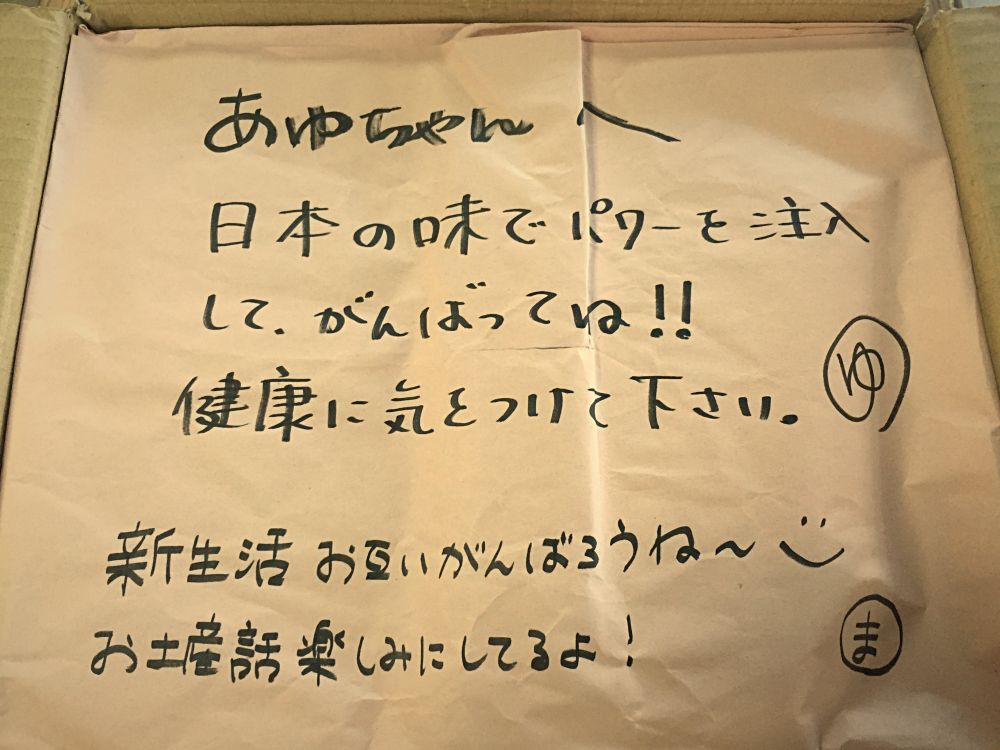 あゆちゃんへ
日本の味でパワーを注入
して、がんばってね!!
健康に気をつけて下さい。
ゆ
新生活 お互いがんばろうね～
お土産話楽しみにしてるよ!
ま